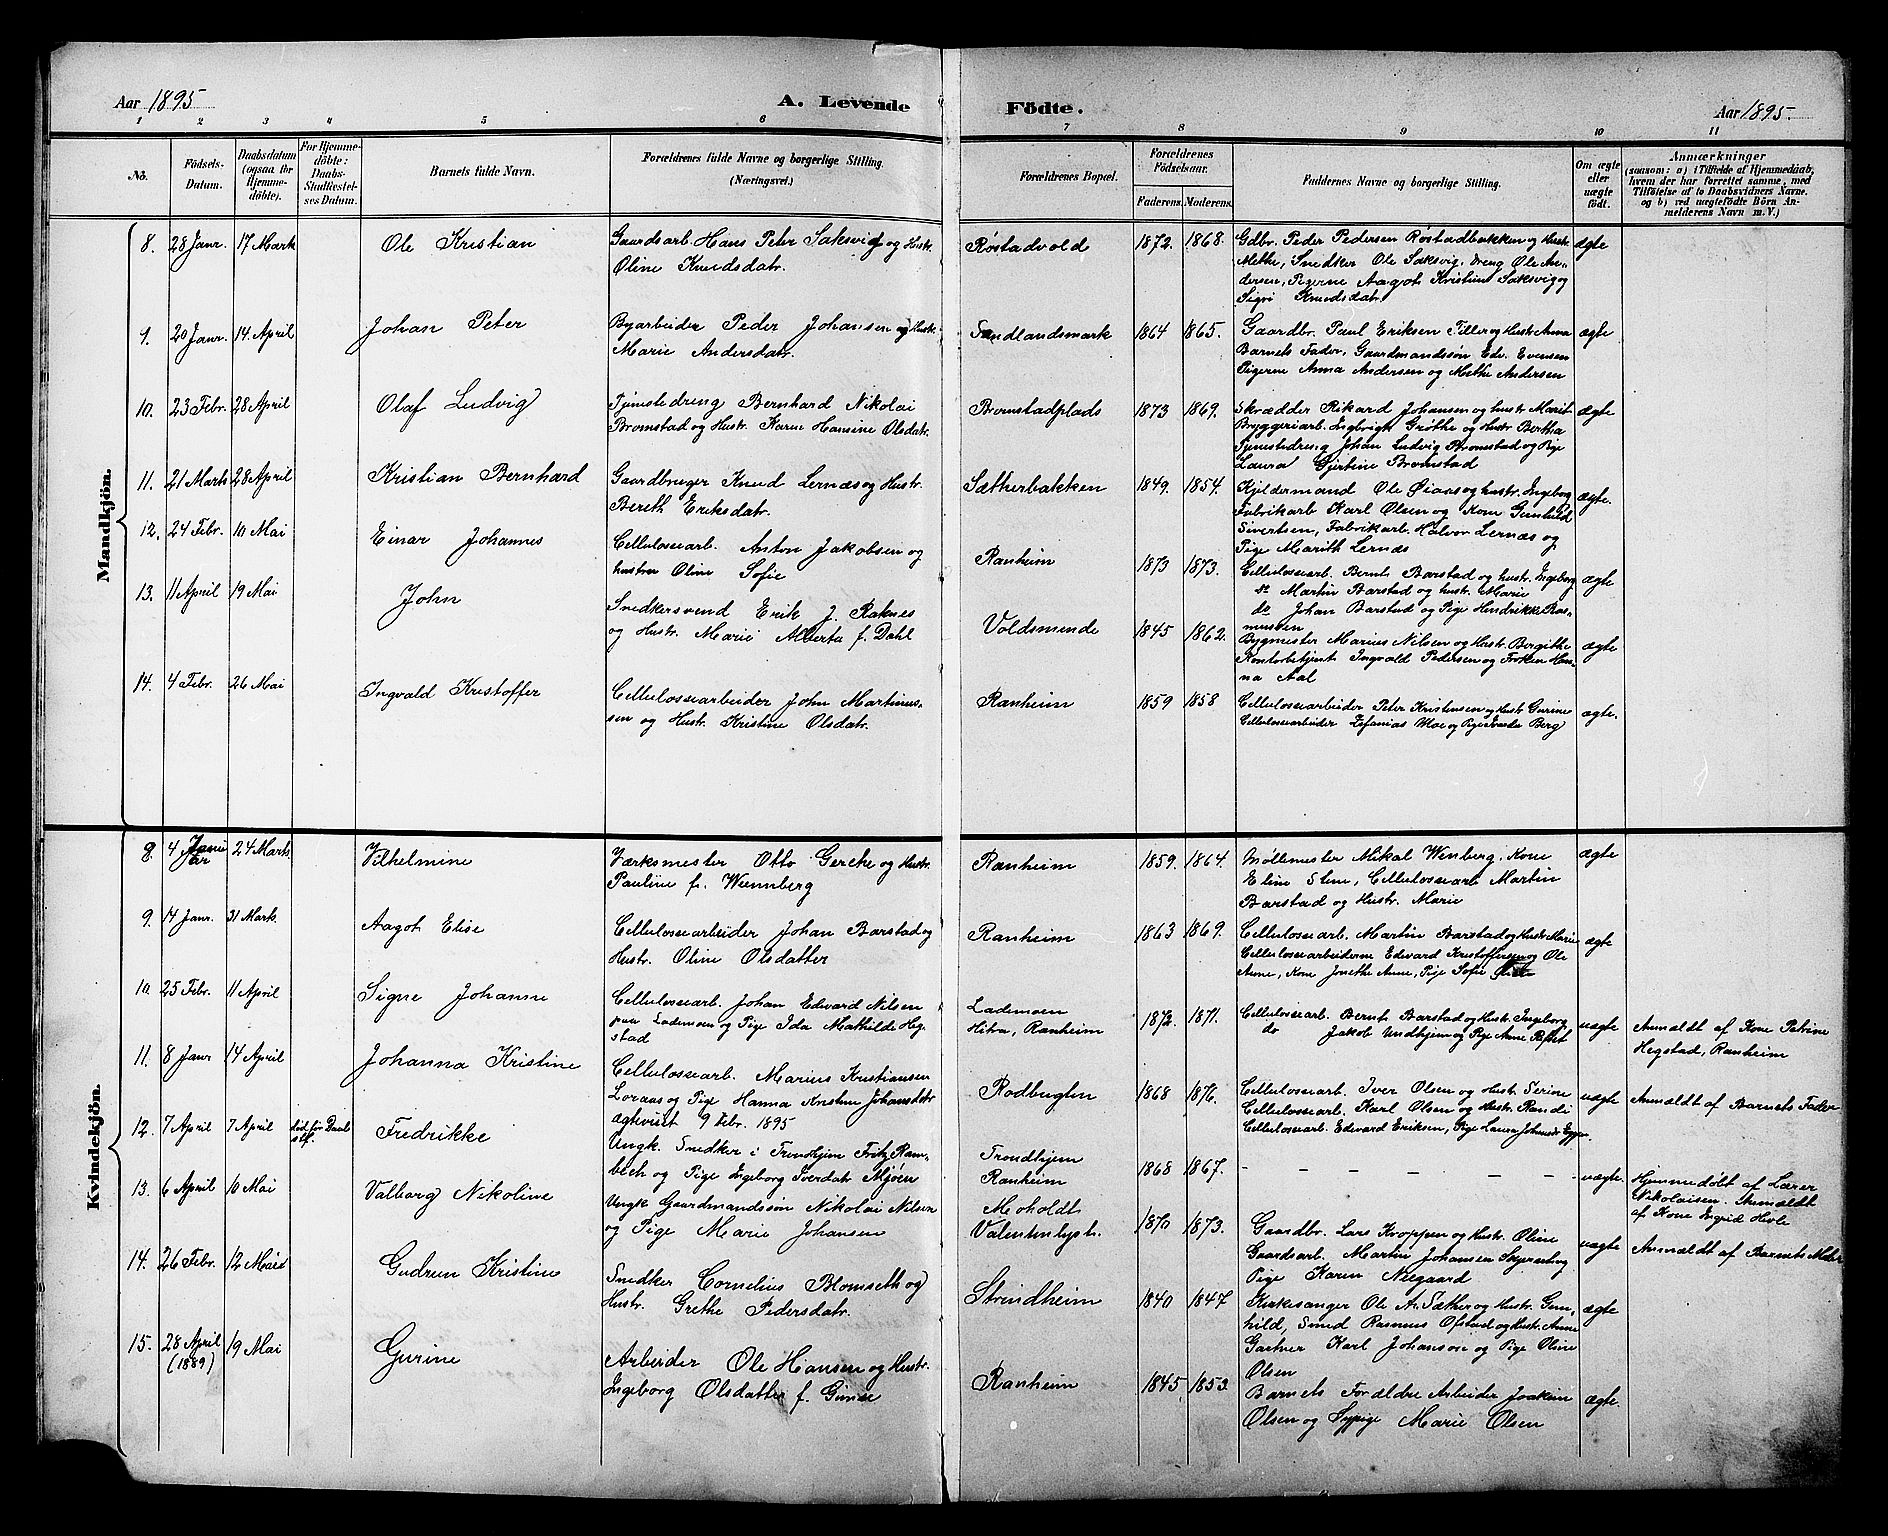 Aar 1895
A. Levende
Födte.
Aar 1895.
1 2 3 4 5 6 7 8 9 10 11
No.
Födsels-
Datum.
Daabsdatum
(ogsaa for
Hjemme-
döbte).
For Hjemme-
döbte:
Daabs-
Stadfæstel-
ses Datum.
Barnets fulde Navn.
Forældrenes fulde Navne og borgerlige Stilling.
(Næringsvei.)
Forældrenes Bopæl.
Forældrenes
Födselsaar.
Faderens. Moderens.
Faddernes Navne og borgerlige Stilling.
Om ægte
eller
uægte
födt.
Anmærkninger
(saasom: a) i Tilfælde af Hjemmedaab,
hvem der har forrettet samme, med
Tilföielse af to Daabsvidners Navne.
og b) ved uægtefödte Börn An-
melderens Navn m. V.)
Mandkjön.
8. 28 Janr. 17 Mark Ole Kristian
Gaardsarb. Hans Peter Saksvig og Hustr.
Oline Knudsdatr.
Røstadvold 1872. 1868.
Gdbr. Peder Pedersen Røstadbakken og Hustr.
Mette, Snedker Ole Saksvig, Dreng Ole An-
dersen, Pigerne Aagot Kristine Saksvig og
Sigri Knudsdatr.
ægte
9. 20 Janr. 14 April Johan Peter
Byarbeider Peder Johansen og Hustr.
Marie Andersdatr.
Sandlandsmark 1864 1865.
Gaardbr. Paul Eriksen Tiller og Hustr. Anna
Barnets Fader, Gaardmandssøn Edv. Evensen
Pigerne Anna Andersen og Mette Andersen
ægte
10. 23 Febr. 28 April Olaf Ludvig
Tjenestedreng Bernhard Nikolai
Bromstad og Hustr. Karen Hansine Olsdatr.
Bromstadplads 1873 1869.
Skrædder Rikard Johansen og Hustr. Marit
Bryggeriarb. Ingbrigt Grøthe og Hustr. Bertha
Tjenestedreng Johan Ludvig Bromstad og Pige
Laura Gjertine Bromstad
ægte
11. 21 Marts 28 April Kristian Bernhard
Gaardbruger Knud Lernæs og Hustr.
Bereth Eriksdatr.
Sætherbakken 1849. 1854.
Kjeldermand Ole Øiaas og hustr. Ingeborg
Fabrikarb. Karl Olsen og Kone Gunhild
Sivertsen, Fabrikarb. Halvor Lernæs og
Pige Marith Lernæs
ægte.
12. 24 Febr. 10 Mai Einar Johannes
Cellulossearb. Anton Jakobsen og
hustru Oline Sofie
Ranheim 1873 1873.
Cellulossearb. Bernt Barstad og hustr. Ingeborg
do Martin Barstad og hustr. Marie
do Johan Barstad og Pige Hendrikke Ras-
mussen
ægte
13. 11 April 19 Mai John
Snedkersvend Erik J. Raknes
og Hustr. Marie Alberta f. Dahl
Voldsminde 1845 1862.
Bygmester Marius Nilsen og Hustr. Bergithe
Kontorbetjent Ingvald Pedersen og Frøken Han-
na Aal
ægte
14. 4 Febr. 26 Mai Ingvald Kristoffer
Cellulossearbeider John Martinus-
sen og Hustr. Kristine Olsdatr.
Ranheim 1859 1858
Cellulossearbeider Peter Kristensen og Hustr. Gurine
Cellulossearbeider Zefanias Moe og Pige Berg
ægte.
Kvindekjön.
8. 4 Janu
ar 24 Marts Vilhelmine
Værksmester Otto Gercke og Hustr.
Pauline f. Wennberg
Ranheim 1859. 1864.
Møllemester Mikal Wenberg. Kone
Eline Stene, Cellulossearb. Martin
Barstad og Hustr. Marie
ægte
9. 14 Janr. 31 Marts. Aagot Elise
Cellulossearbeider Johan Barstad og
Hustr. Oline Olsdatter
Ranheim 1863 1869.
Cellulossearb. Martin Barstad og Hustr. Marie
Cellulossearbeiderne Edvard Kristoffersen og Ole
Aune, Kone Josethe Aune, Pige Sofie
ægte
10. 25 Febr. 11 April Signe Johanne
Cellulossearb. Johan Edvard Nilsen
paa Lademoen og Pige Ida Mathilde Heg-
stad
Lademoen
Hitra, Ranheim 1872. 1871.
Cellulossearb. Bernt Barstad og Hustr. Ingeborg
do Jakob Undhjem og Pige Anne Refset
uægte
Anmeldt af Kone Petrine
Hegstad, Ranheim
11. 8 Janr 14 April Johanna Kristine
Cellulossearb. Marius Kristiansen
Loraas og Pige Hanna Kristine Johansdatr
ægteviet 9 Febr. 1895
Rodbugten 1868 1876.
Cellulossearb. Iver Olsen og Hustr. Serine
Cellulossearb. Karl Olsen og Hustr. Randi
Cellulossearb. Edvard Eriksen, Pige Laura Johansdr Eggen.
uægte
Anmeldt af Barnets Fader
12. 7 April 7 April død før Daabs
stf. Fredrikke
Ungk. Snedker i Trondhjem Fritz Ram-
bech og Pige Ingeborg Iversdatr. Mjøen
Trondhjem
Ranheim 1868 1867.
- - - - - - -
uægte
Hjemmedøbt af Lærer
Nikolaisen. Anmeldt
af Kone Ingrid Hevle
13. 6 April 10 Mai Valborg Nikoline
Ungk Gaardmandssøn Nikolai Nilsen
og Pige Marie Johansen
Moholdt
Valentinlyst. 1870 1873.
Gaardbr. Lars Kroppen og Hustr. Oline
Gaardsarb. Martin Johansen
Pige Karen Neegaard
uægte
Anmeldt af Barnets Moder
14. 26 Febr. 12 Mai Gudrun Kristine
Snedker Cornelius Blomseth og
Hustr. Grethe Pedersdatr.
Strindheim 1840 1847
Kirkesanger Ole A. Sæther og Hustr. Gun-
hild, Smed Rasmus Ofstad og Hustr. Anne
Gartner Karl Johanson og Pige Oline
Olsen
ægte
15. 28 April
(1889) 19 Mai Gurine
Arbeider Ole Hansen og Hustr.
Ingeborg Olsdatter f. Gimse
Ranheim 1845 1853.
Barnets Forældre Arbeider Joakim
Olsen og Sypige Marie Olsen
ægte.